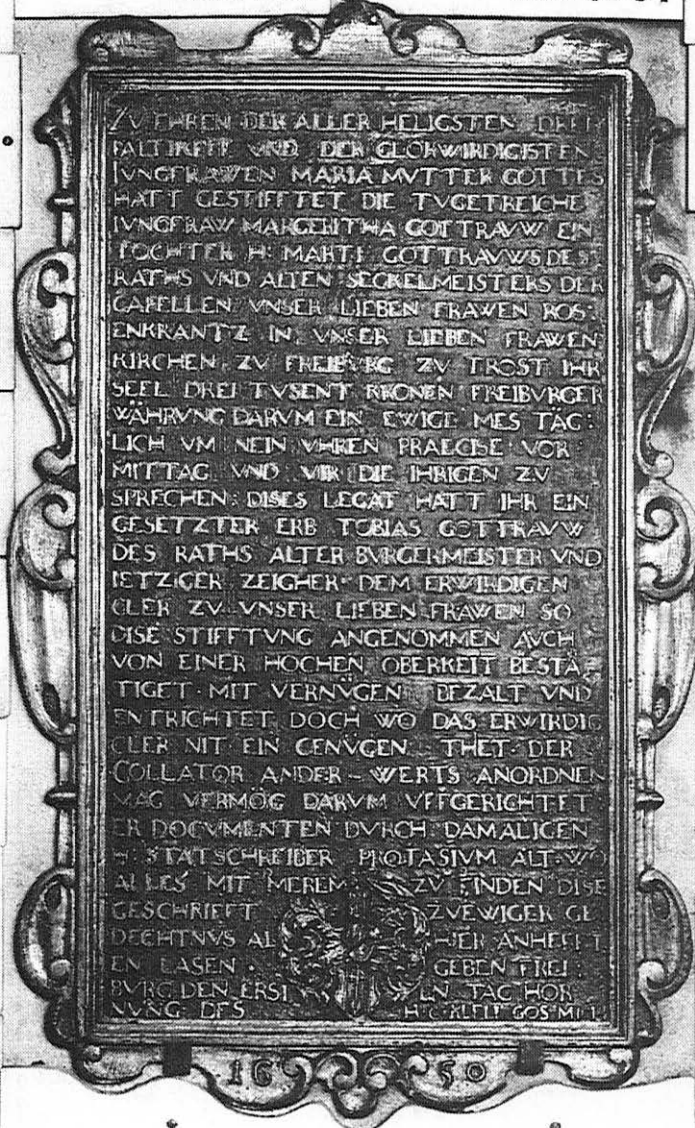 ZV EHREN DER ALLER HELIGSTEN DREI
FALTIKEIT VND DER GLORWIRDIGISTEN
IVNGFRAWEN MARIA MVTTER GOTTES
HATT GESTIFFTET DIE TVGETREICHE
IVNGFRAW MARGERITHA GOTTRAVW EIN
TOCHTER H· MARTI GOTTRAVWS DES
RATHS VND ALTEN SECKELMEISTERS DER
CAPELLEN VNSER LIEBEN FRAWEN ROS:
ENKRANTZ IN VNSER LIEBEN FRAWEN
KIRCHEN ZV FREIBVRG ZV TROST IHR
SEEL DREI TVSENT KRONEN FREIBVRGER
WÄHRVNG DARVM EIN EWIGE MES TÄG:
LICH VM NEIN VHREN PRAECISE VOR
MITTAG VND VIR DIE IHRIGEN ZV
SPRECHEN· DISES LEGAT HATT IHR EIN
GESETZTER ERB TOBIAS GOTTRAVW
DES RATHS ALTER BVRGERMEISTER VND
IETZIGER ZEIGHER DEM ERWIRDIGEN
CLER ZV VNSER LIEBEN FRAWEN SO
DISE STIFFTVNG ANGENOMMEN AVCH
VON EINER HOCHEN OBERKEIT BESTÄ
TIGET· MIT VERNVGEN BEZALT VND
ENTRICHTET DOCH WO DAS ERWIRDIG
CLER NIT EIN GENVGEN THET· DER
COLLATOR ANDER-WERTS ANORDNEN
MAG VERMÖG DARVM VFFGERICHTET
ER DOCVMENTEN DVRCH DAMALIGEN
H· STATSCHREIBER PROTASIVM ALT· WO
ALLES MIT MEREM ZV FINDEN DISE
GESCHRIFFT ZVEWIGER GE
DECHTNVS AL HIER ANHEFFT
EN LASEN· GEBEN FREI:
BVRG DEN ERST EN TAG HOR
NVNG DES H·C·
1650